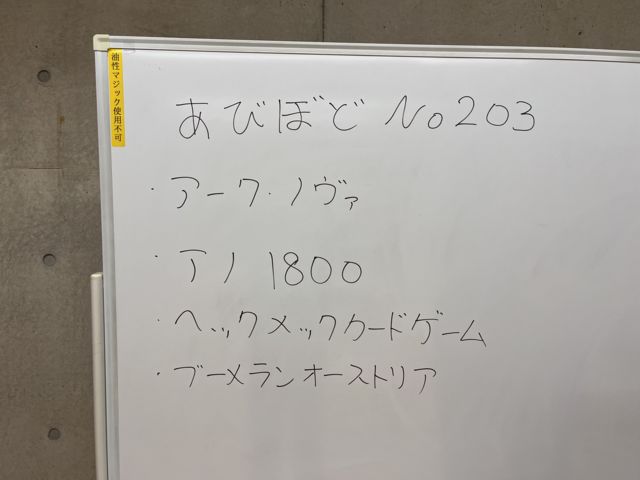 油性マジック使用不可
あびぼど No203
・アーク・ノヴァ
・アノ 1800
・ヘックメックカードゲーム
・ブーメランオーストリア